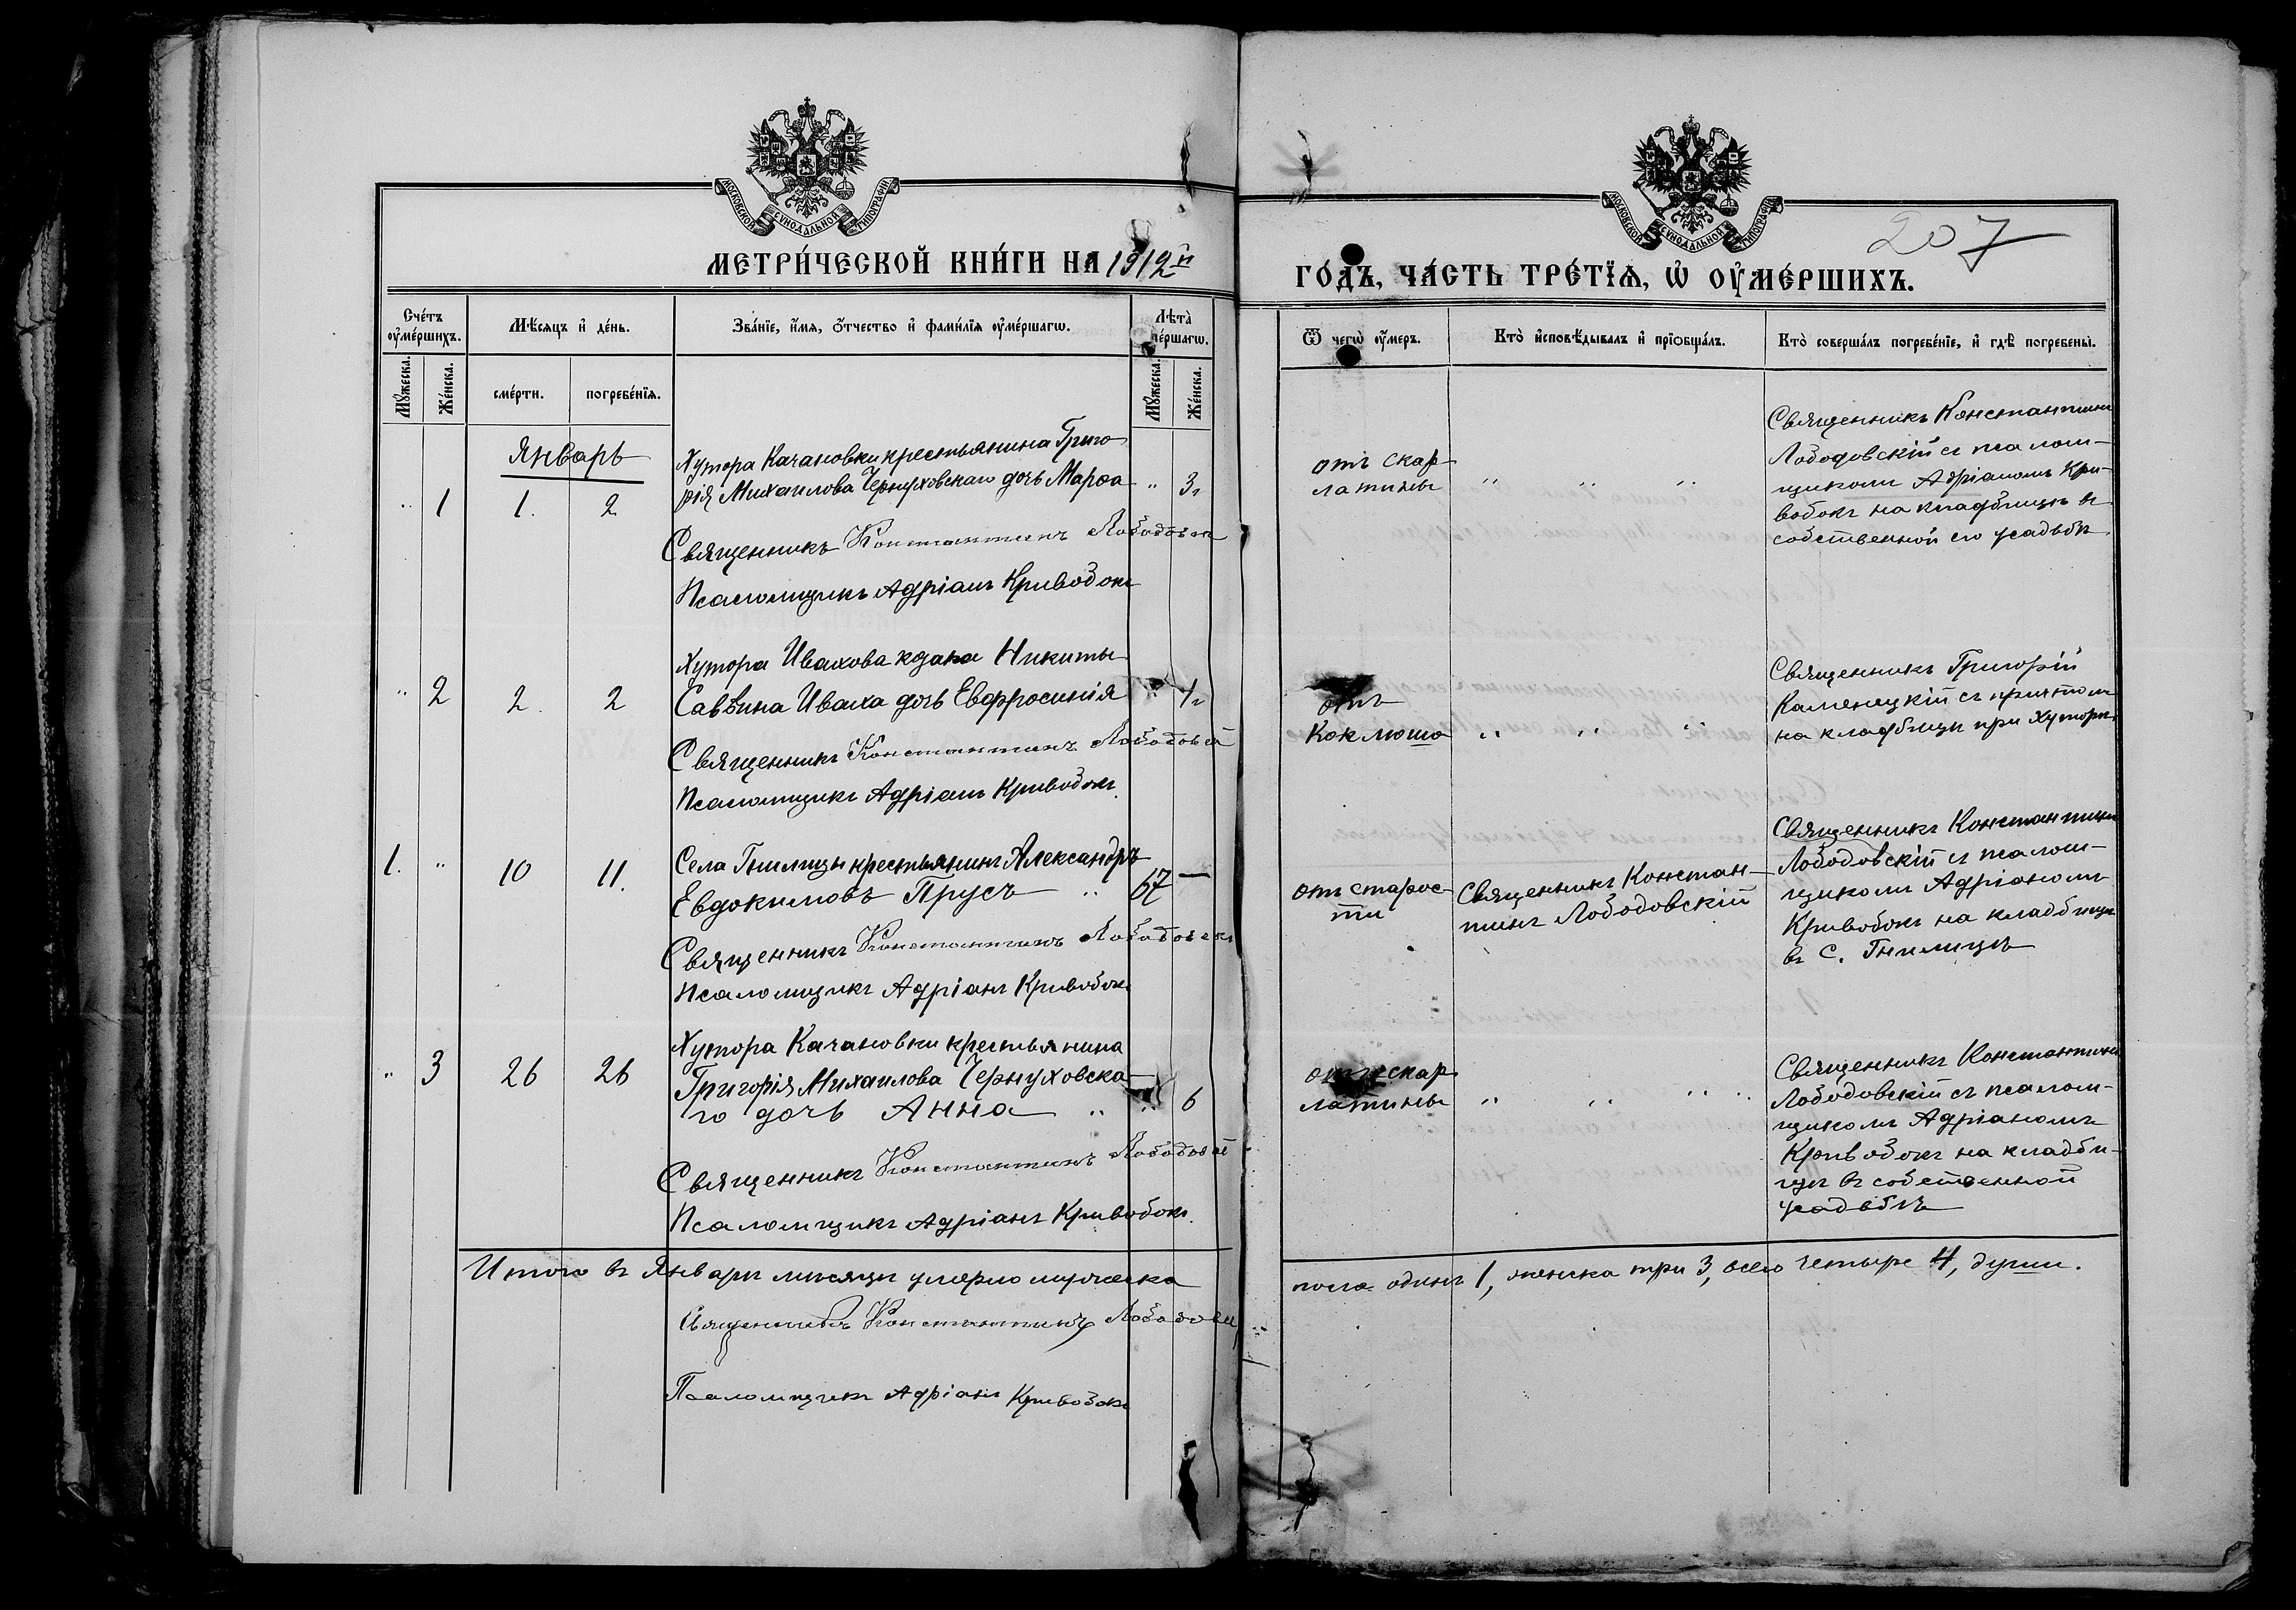 МОСКОВСКОЙ СѴНОДАЛЬНОЙ ТИПОГРАФІИ
МОСКОВСКОЙ СѴНОДАЛЬНОЙ ТИПОГРАФІИ
207
МЕТРИ́ЧЕСКОЙ КНИ́ГИ НА 1912й
ГО́ДЪ, ЧА́СТЬ ТРЕ́ТЇѦ, Ѡ҆ ОУ҆МЕ́РШИХЪ.
Сче́тъ оу҆ме́ршихъ.
Мѣ́сяцъ и҆ де́нь.
Зва́нїе, и҆́мя, ѻ҆́тчество и҆ фами́лїя оу҆ме́ршагѡ.
Лѣта̀
ме́ршагѡ.
Ѿ чегѡ̀ оу҆́меръ.
Кто̀ и҆сповѣ́дывалъ и҆ прїѻбща́лъ.
Кто̀ соверша́лъ погребе́нїе, и҆ гдѣ̀ погребены̀.
Мꙋ́жеска.
Же́нска.
сме́рти.
погребе́нїя.
Мꙋ́жеска.
Же́нска.
Январь
" 1 1. 2
Хутора Качановки крестьянина Григо-
рія Михаилова Чернуховскаго дочь Марѳа " 3г
Священникъ Константинъ Лободовск
Псаломщикъ Адріанъ Кривобокъ
отъ скар-
латины " " "
Священникъ Константинъ
Лободовскій съ псалом-
щикомъ Адріаномъ Кри-
вобокъ на кладбищѣ въ
собственной его усадьбѣ
" 2 2. 2
Хутора Ивахова кзака Никиты
Саввина Иваха дочь Евфросинія " 1г
Священникъ Константинъ Лободовскій
Псаломщикъ Адріанъ Кривобокъ
отъ
Коклюша " " "
Священникъ Григорій
Каменецкій съ причтомъ
на кладбищѣ при хуторѣ
1. " 10 11.
Села Гнилицы крестьянинъ Александръ
Евдокимовъ Прусъ " 67 —
Священникъ Константинъ Лободовск
Псаломщикъ Адріанъ Кривобокъ
отъ старос-
ти
Священникъ Констан-
тинъ Лободовскій
Священникъ Константинъ
Лободовскій съ псалом-
щикомъ Адріаномъ
Кривобокъ на кладбищѣ
въ С. Гнилицѣ
" 3 26 26
Хутора Качановки крестьянина
Григорія Михаилова Чернуховска-
го дочь Анна " " 6
Священникъ Константинъ Лободовскій
Псаломщикъ Адріанъ Кривобокъ.
отъ скар-
латины " " " "
Священникъ Константинъ
Лободовскій съ псалом-
щикомъ Адріаномъ
Кривобокъ на кладби-
щѣ въ собственной
усадьбѣ
Итого въ Январѣ мѣсяцѣ умерло мужеска
пола одинъ 1, женска три 3, всего четыре 4, души.
Священникъ Константинъ Лободовскі
Псаломщикъ Адріанъ Кривобокъ